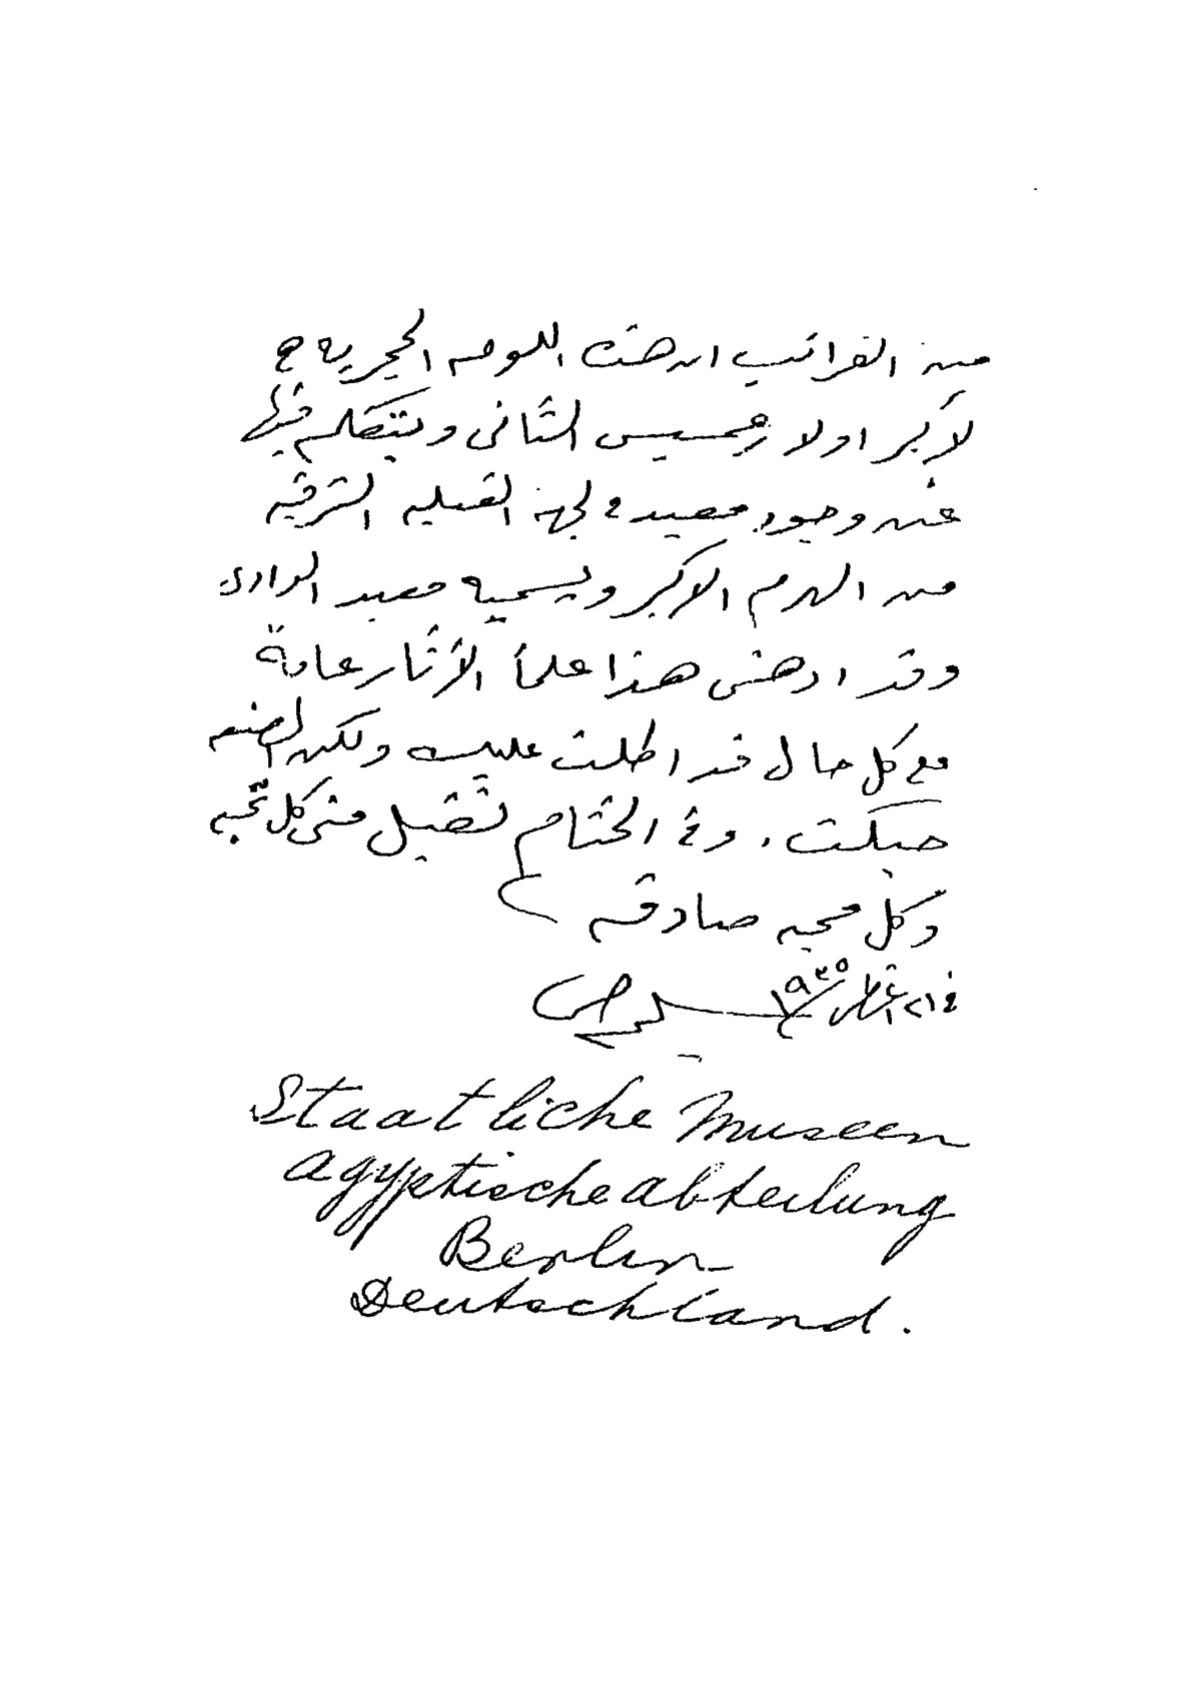 من الغرائب ان هذه اللوحه الحجريه هى
لأكبر اولاد رعمسيس الثانى ويتكلم فيها
عن وجود معبد فى الجهة القبليه الشرقيه
من الهرم الاكبر ويسميه معبد الوادى
وقد ادهش هذا علماء الأثار عامة
مع كل حال قد اطلت عليك ولكن
حبكت. وفى الختام تقبل منى كل تحيه
وكل محبه صادقه
فى ٢١ ١٩٣٥
Staatliche Museen
Agyptische abteilung
Berlin
Deutschland.